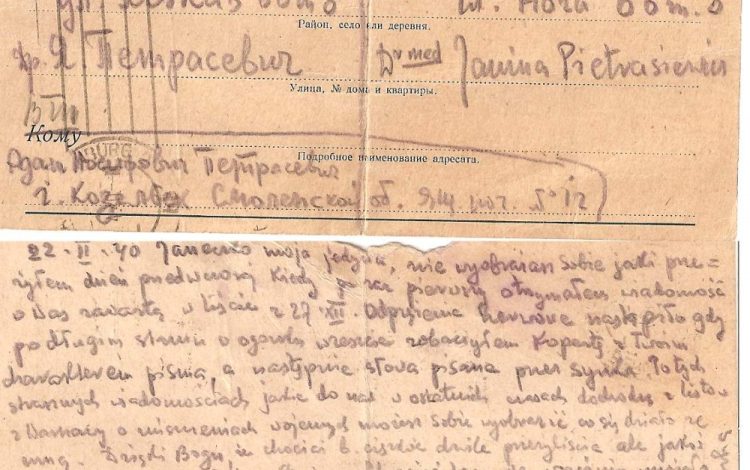 Район, село или деревня.
Др. Я Петрасевич Dr med Janina Pietrasiewicz
Улица, № дома и квартиры.
Кому
BURG
Подробное наименование адресата.
Адам Петрасевич
г. Козельск Смоленской об. ящ. поч. № 12
22. II. 40 Janeczko moja jedyna, nie wyobrażasz sobie jaki prze=
żyłem dzień przedwczoraj kiedy raz pierwszy otrzymałem wiadomość
o Was zawartą w liście z 27 XII. Odprężenie nerwowe nastąpiło gdy
po długim staniu w ogonku wreszcie zobaczyłem kopertę z Twoim
charakterem pisma, a następnie słowa pisane przez synka. Po tych
strasznych wiadomościach jakie do nas w ostatnich czasach dochodzą z listów
z Warszawy o zniszczeniach wojennych możesz sobie wyobrazić co się działo ze
mną. Dzięki Bogu, że chociaż b. ciężkie chwile przeżyliście ale jakoś